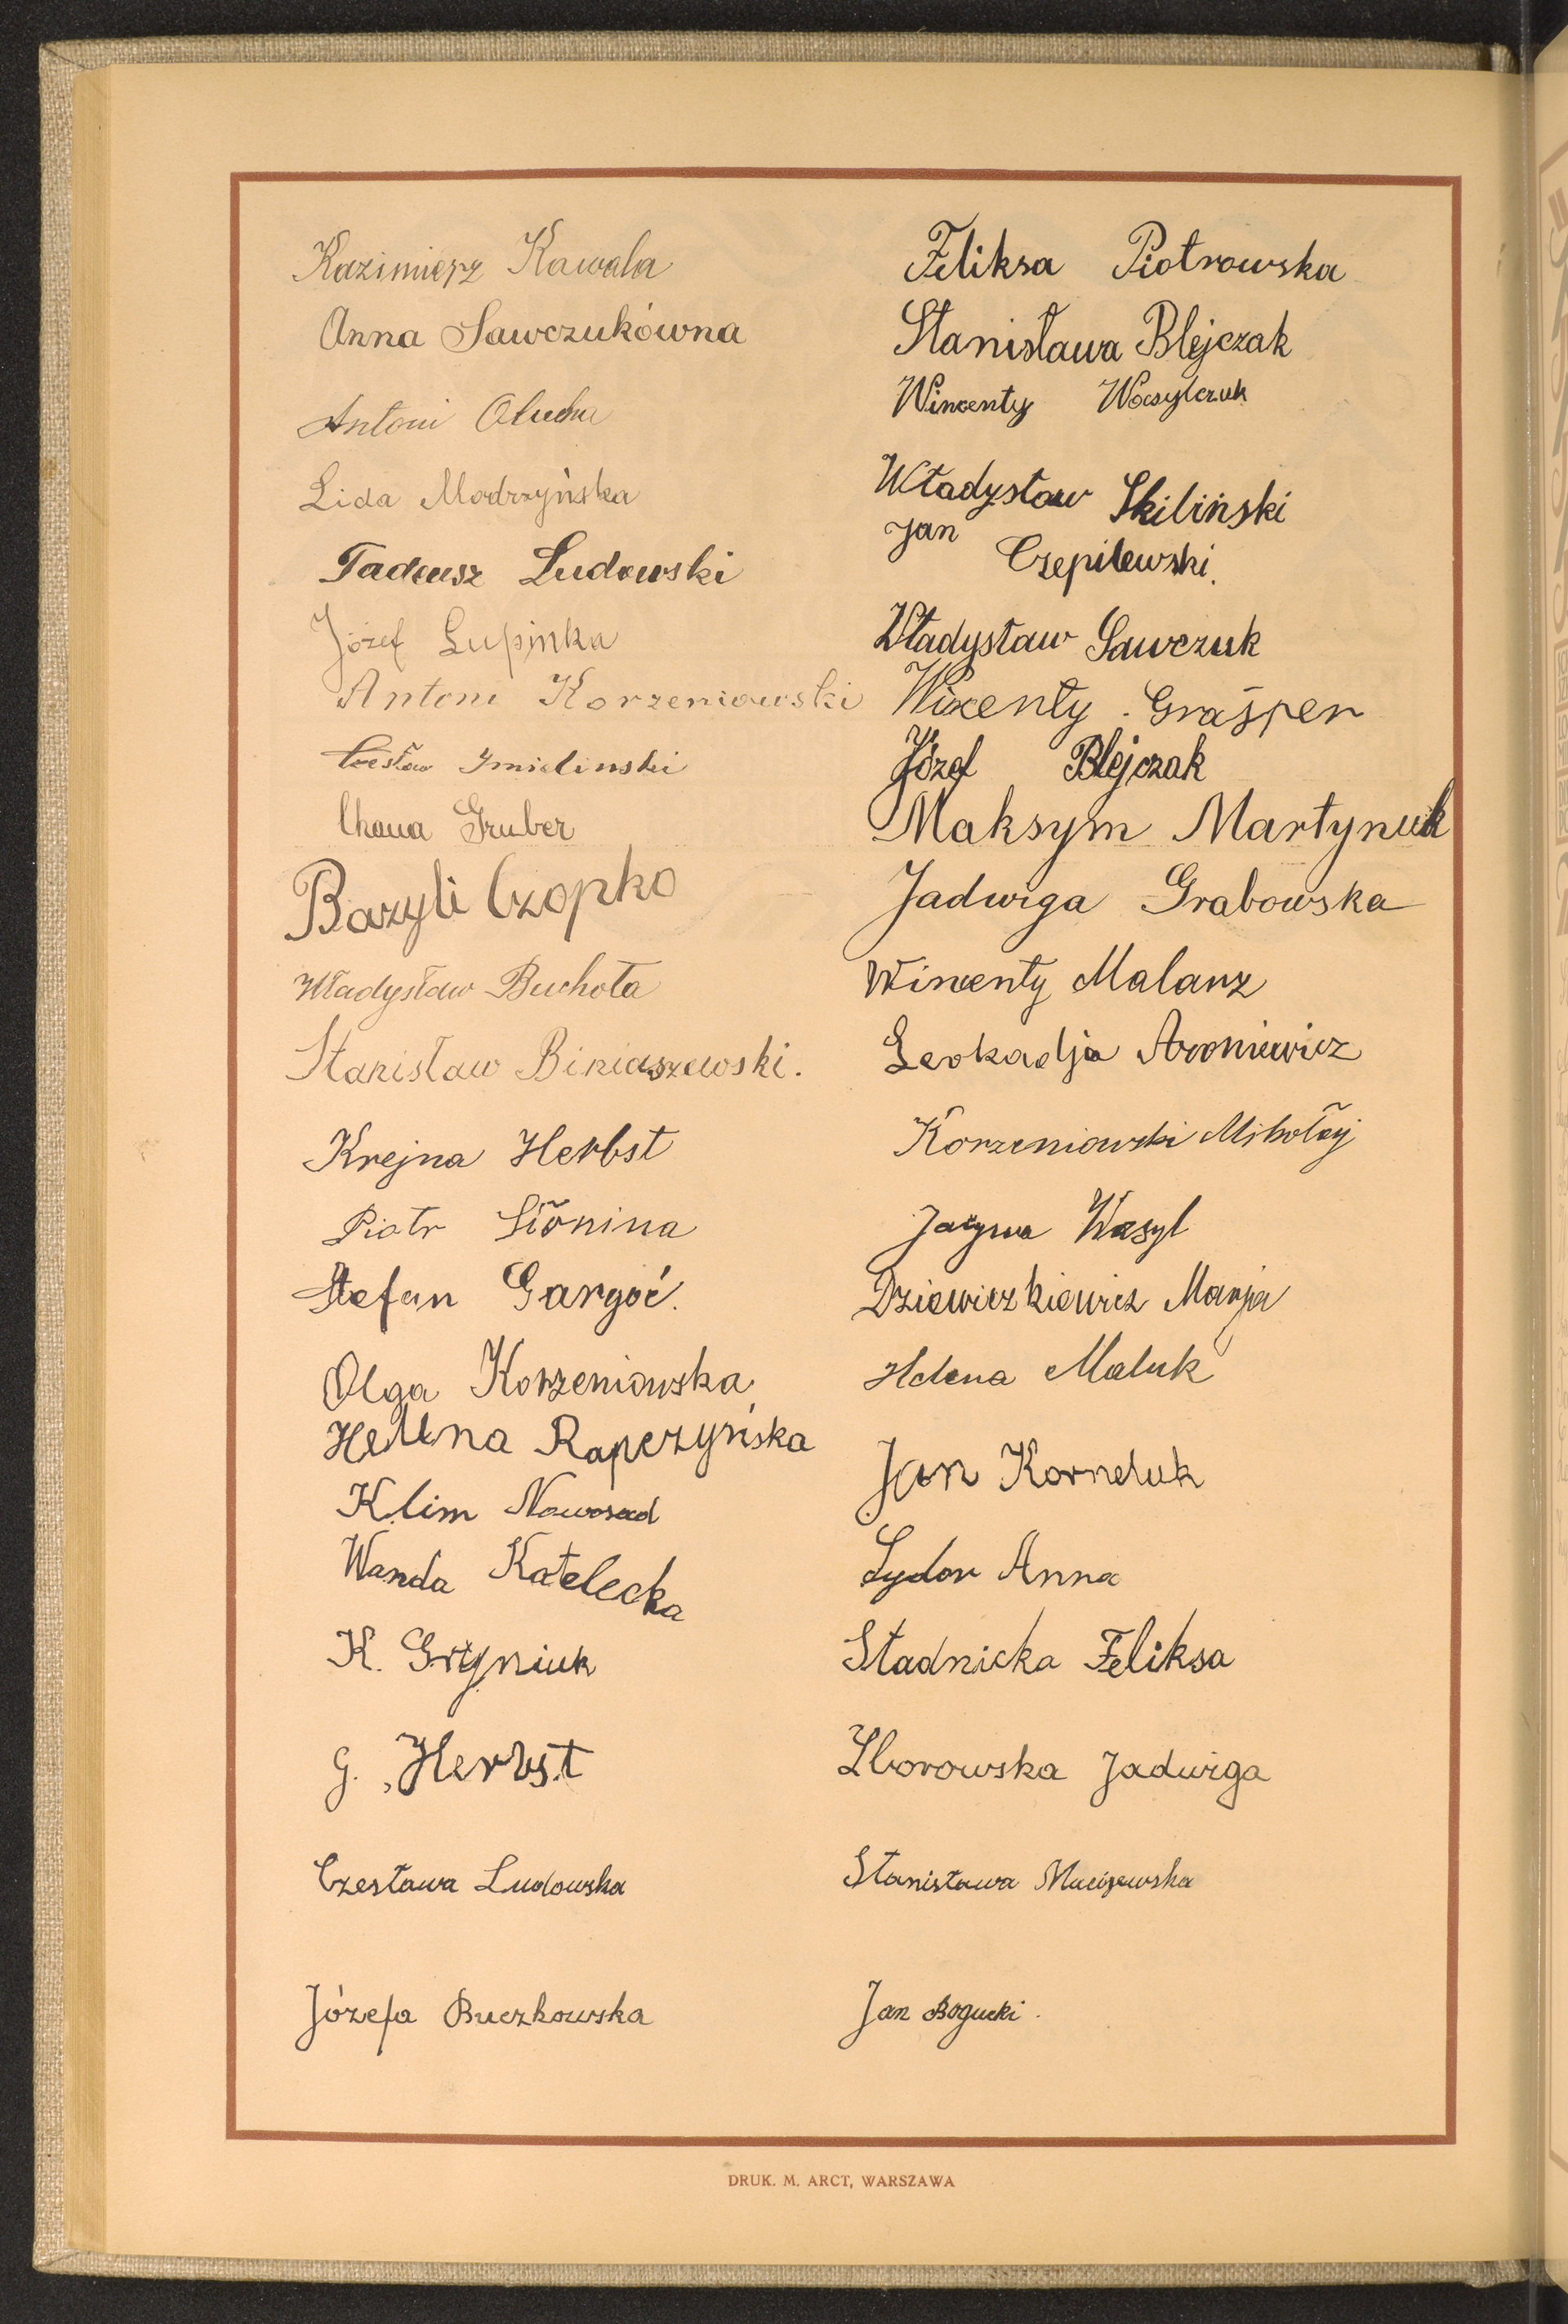 Kazimierz Kawala
Anna Sawczukówna
Antoni Olucha
Lida Modrzyńska
Tadeusz Ludowski
Józef Łupinka
Antoni Korzeniowski
Czesław Imielinski
Chana Gruber
Bazyli Czopko
Władysław Buchoła
Stanisław Biniaszewski.
Krejna Herbst
Piotr Słonina
Stefan Gargoć.
Olga Korzeniowska
Helena Rapczyńska
Klim Nawosad
Wanda Kałelecka
K. Gryniuk
G. Herbst
Czesława Ludowska
Józefa Buczkowska
Feliksa Piotrowska
Stanisława Blejczak
Wincenty Wasylczuk
Władysław Skiliński
Jan Czepilewski.
Władysław Sawczuk
Wicenty Graśper
Józef Blejczak
Maksym Martynuk
Jadwiga Grabowska
Wincenty Malarz
Leokadja Aroniewicz
Korzeniowski Mikołaj
Wasyl
Dziewiczkiewicz Marja
Helena Maluk
Jan Korneluk
Sydor Anna
Stadnicka Feliksa
Zborowska Jadwiga
Stanisława Maciejewska
Jan Bogucki.
DRUK. M. ARCT, WARSZAWA